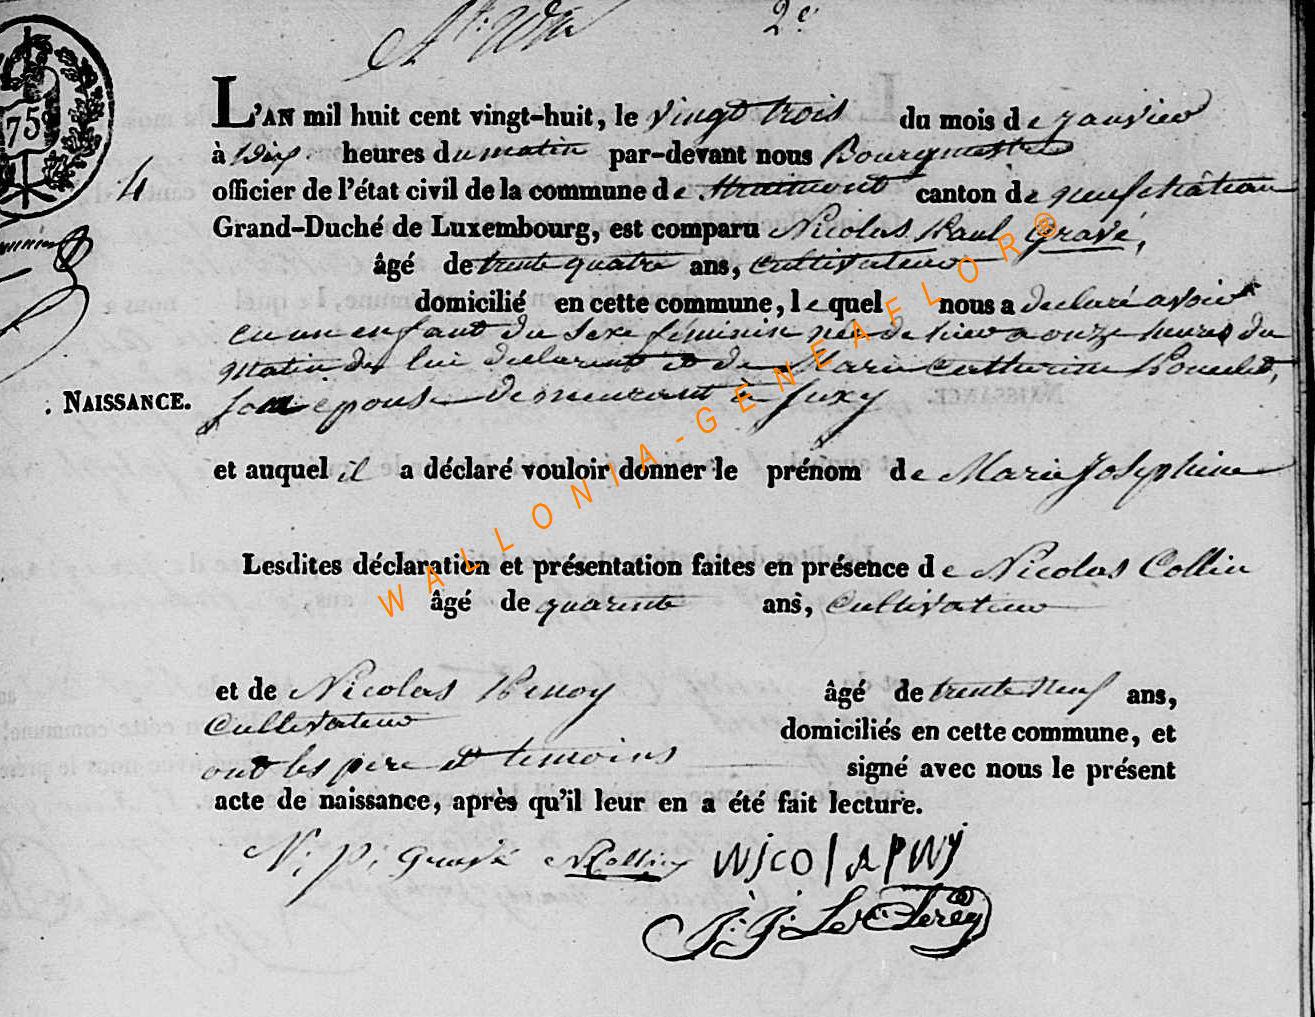 2e
75
4
L'AN mil huit cent vingt-huit, le vingt trois du mois de janvier
à Dix heures du matin par-devant nous Bourgmestre
officier de l'état civil de la commune de Straimont canton de neufchâteau
Grand-Duché de Luxembourg, est comparu Nicolas Paul Gravé,
âgé de trente quatre ans, Cultivateur
domicilié en cette commune, lequel nous a declaré avoir
eu un enfant du sexe féminin née de hier a onze heures du
matin de lui declarant et de Marie Catherine
NAISSANCE. son épouse demeurant à Juxy
et auquel il a déclaré vouloir donner le prénom de Marie Josephine
Lesdites déclaration et présentation faites en présence de Nicolas Collin
âgé de quarente ans, Cultivateur
et de Nicolas âgé de trente neuf ans,
Cultivateur domiciliés en cette commune, et
ont les pere et temoins signé avec nous le présent
acte de naissance, après qu'il leur en a été fait lecture.
N. p. Gravé NCollin
J. J.
WALLONIA-GENEAFLOR®